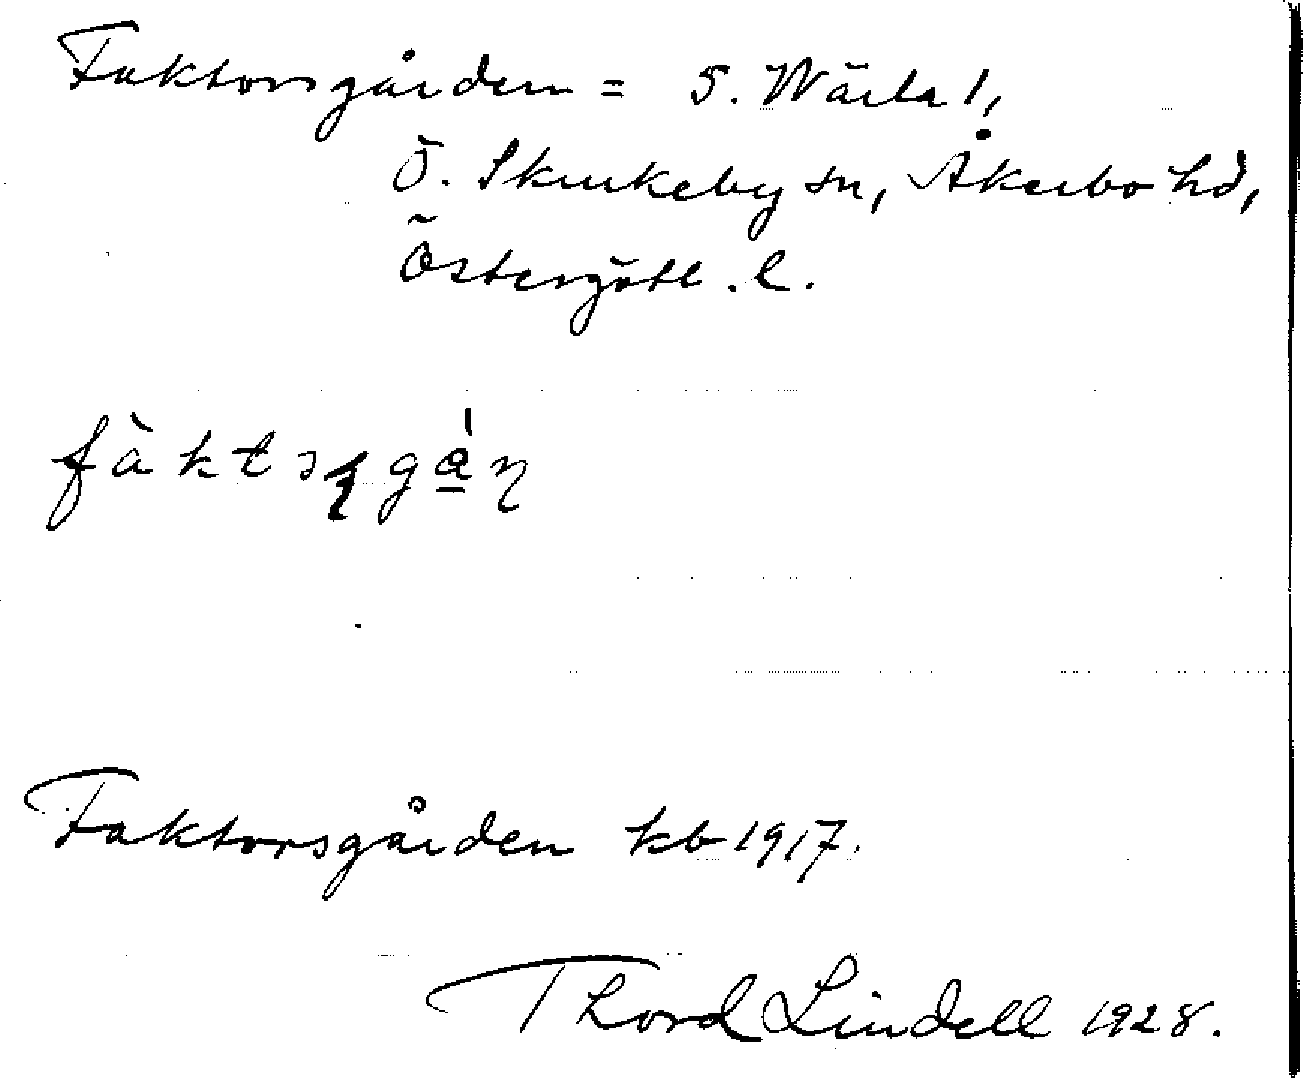 Faktorsgården = S. Wärla 1,
Ö. Skrukeby sn, Åkerbo hd,
Östergötl. l.
Faktorsgården kb 1917.
Thord Lindell 1928.